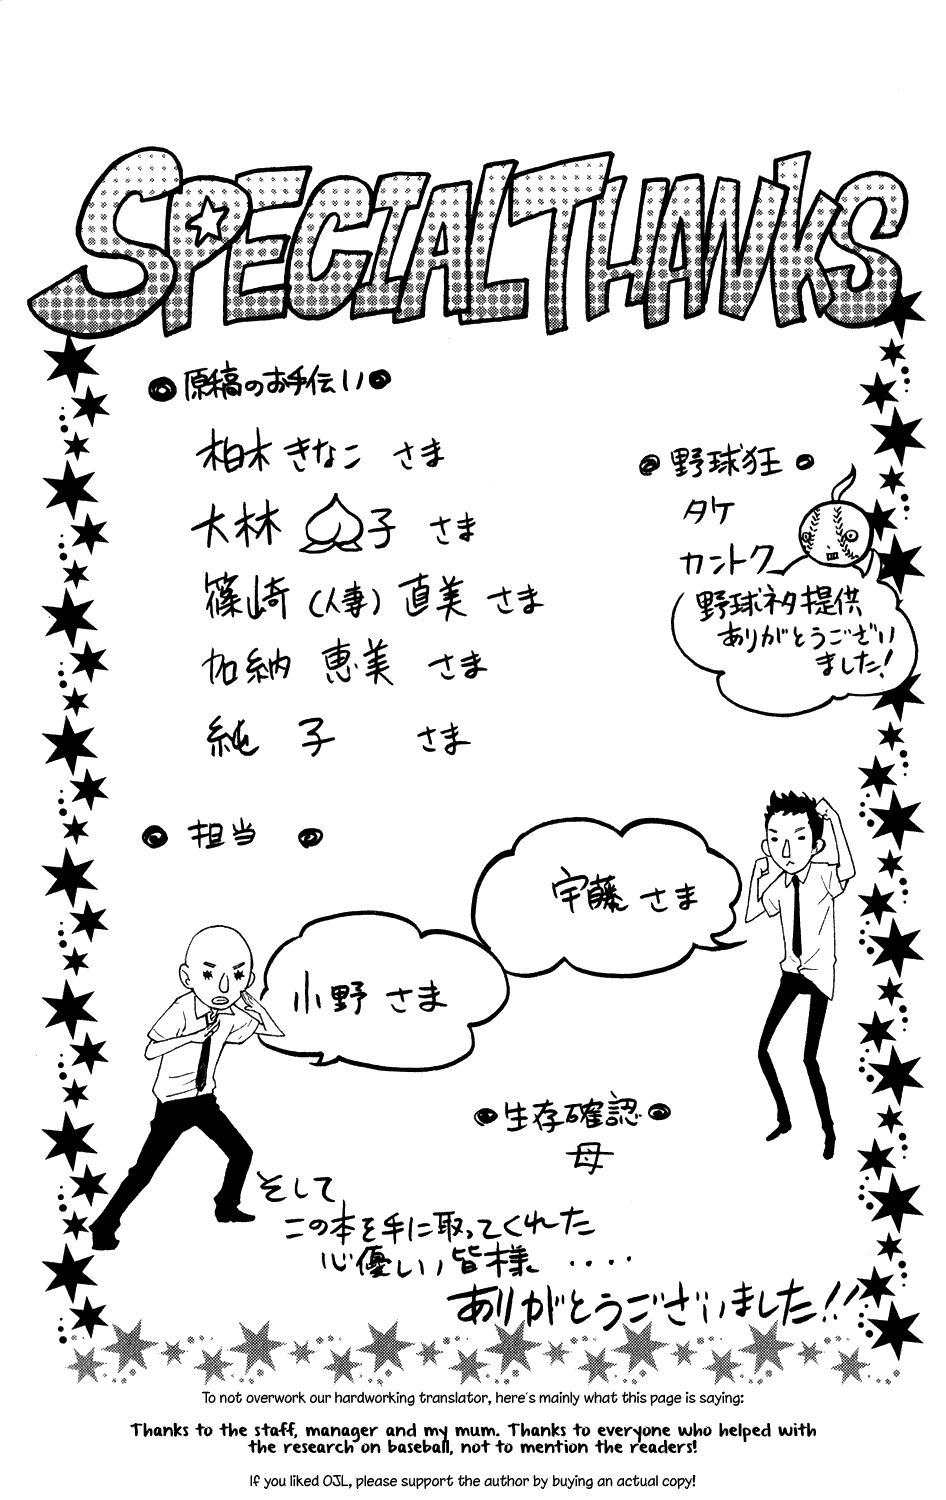 SPECIAL THANKS
原稿のお手伝い
柏木 きなこ さま
大林 子 さま
篠崎(人妻)直美 さま
加納 恵美 さま
純子 さま
野球狂
タケ
カントク
野球ネタ提供
ありがとうござい
ました!
担当
宇藤 さま
小野 さま
生存確認
母
そして
この本を手に取ってくれた
心優しい皆様 ‥‥
ありがとうございました!!
To not overwork our hardworking translator, here's mainly what this page is saying:
Thanks to the staff, manager and my mum. Thanks to everyone who helped with
the research on baseball, not to mention the readers!
If you liked OJL, please support the author by buying an actual copy!